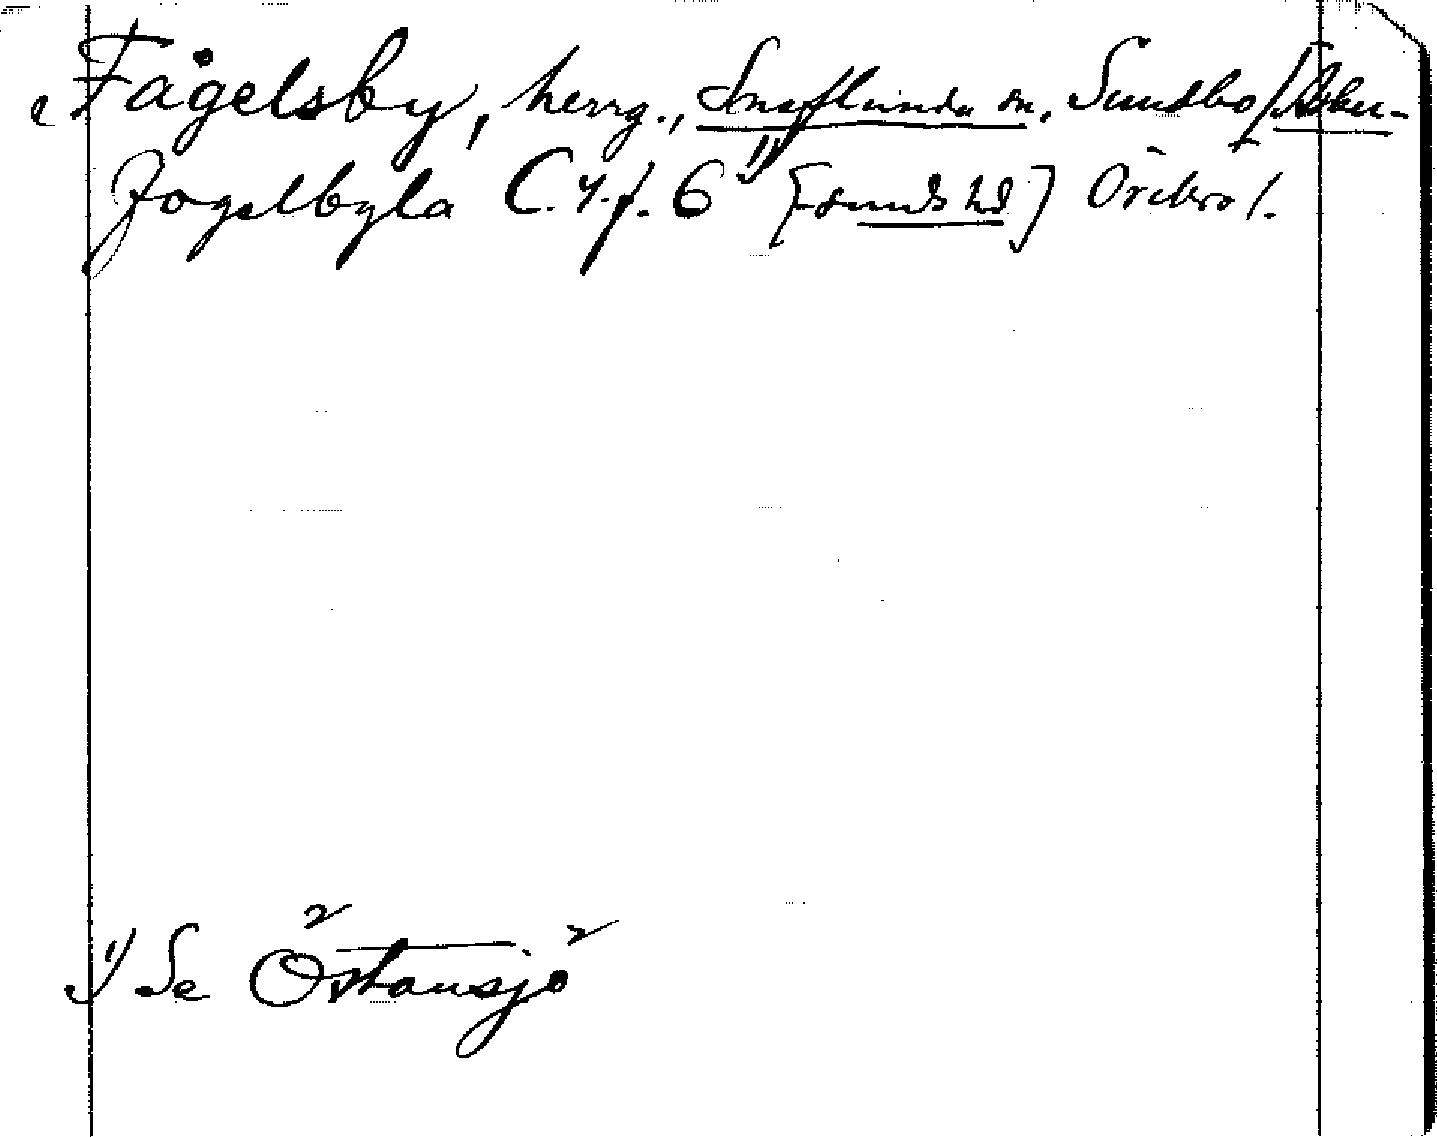 Fågelsby, herrg., Snaflunda sn, Sundbo [Asker-
Fogelbyla C.4.f. 6 1) sunds hd] Örebro l.
1) Se Östansjö